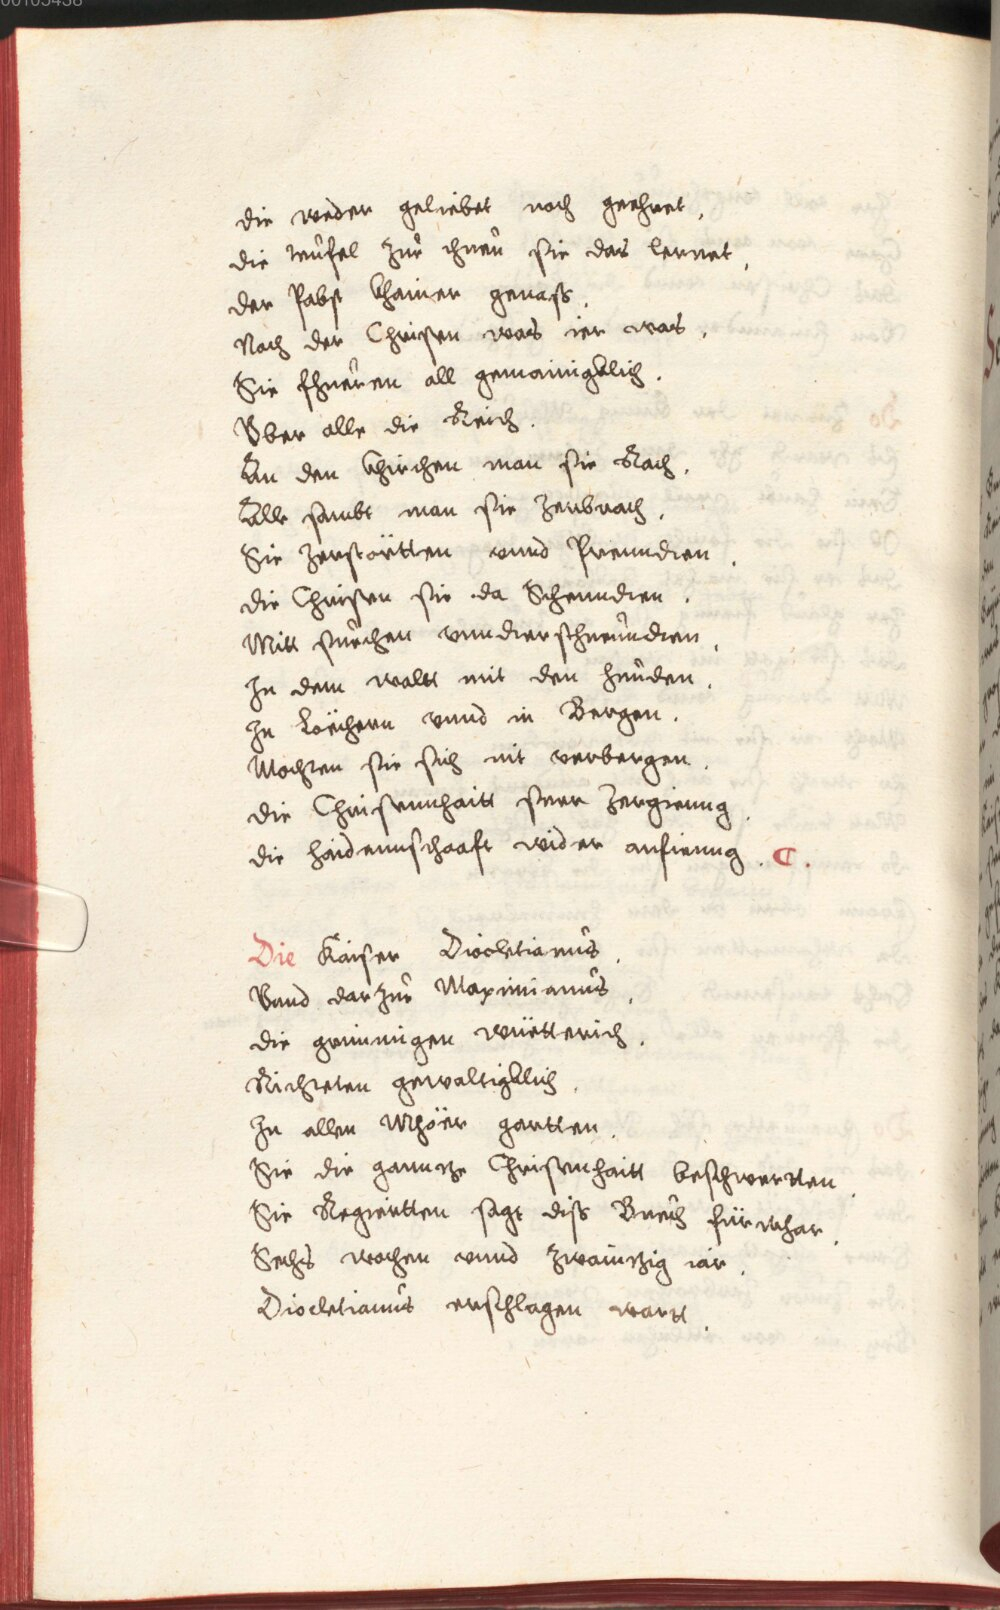 00105438
die weder geliebet noch geehret,
die teüfel Zuͦr ihneü sie das lernet,
der Pabst khainer genaſs.
Noch der Christen was ier was,
Sie fhueren all gemainigklich.
Vber alle die Reich.
An den khirchen man sie Rach,
Alle sambt man sie Zerbrach,
Sie Zerstörtten vnnd Prenndten,
die Christen sie da Schenndten,
Mitt
In dem waltt mit den hunden,
In Löchern vnnd in Bergen,
Mochten sie sich nit verbergen,
die Christennhaitt seer Zergienng,
die haidennschaafft wider anfienng. C.
Die Kaiser Diocletianus,
Vnnd darZue Maximianus,
die grimmigen wüetterich,
Richteten gewaltigklich,
In allen Mhöer gartten,
Sie die ganntze Christenhaitt beschwertten,
Sie Regiertten sagt diſs Buech fürwhar,
Sechs wochen vnnd Zwaintzig iar,
Diocletianus erschlagen wartt,